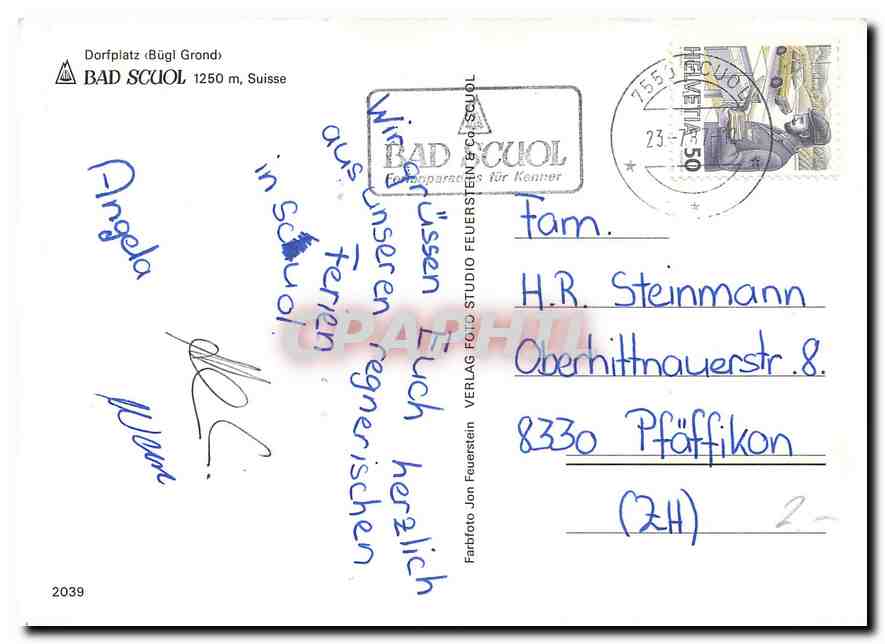 Dorfplatz ‹Bügl Grond›
BAD SCUOL 1250 m, Suisse
Wir grüssen Euch herzlich
aus unseren regnerischen
Ferien
in Scuol.
Angela
2039
Farbfoto Jon Feuerstein VERLAG FOTO STUDIO FEUERSTEIN & Co. SCUOL
BAD SCUOL
Ferienparadies für Kenner
7550 SCUOL
HELVETIA 50
Fam.
H.R. Steinmann
Oberhittnauerstr. 8.
8330 Pfäffikon
(ZH)
2.-
CPAPHIL